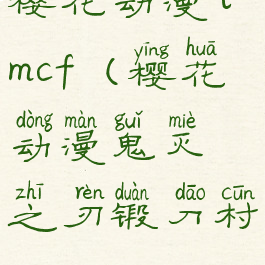 樱花动漫
mcf（樱花
yīng huā
动漫鬼灭
dòng màn guǐ miè
之刃锻刀村
zhī rèn duàn dāo cūn